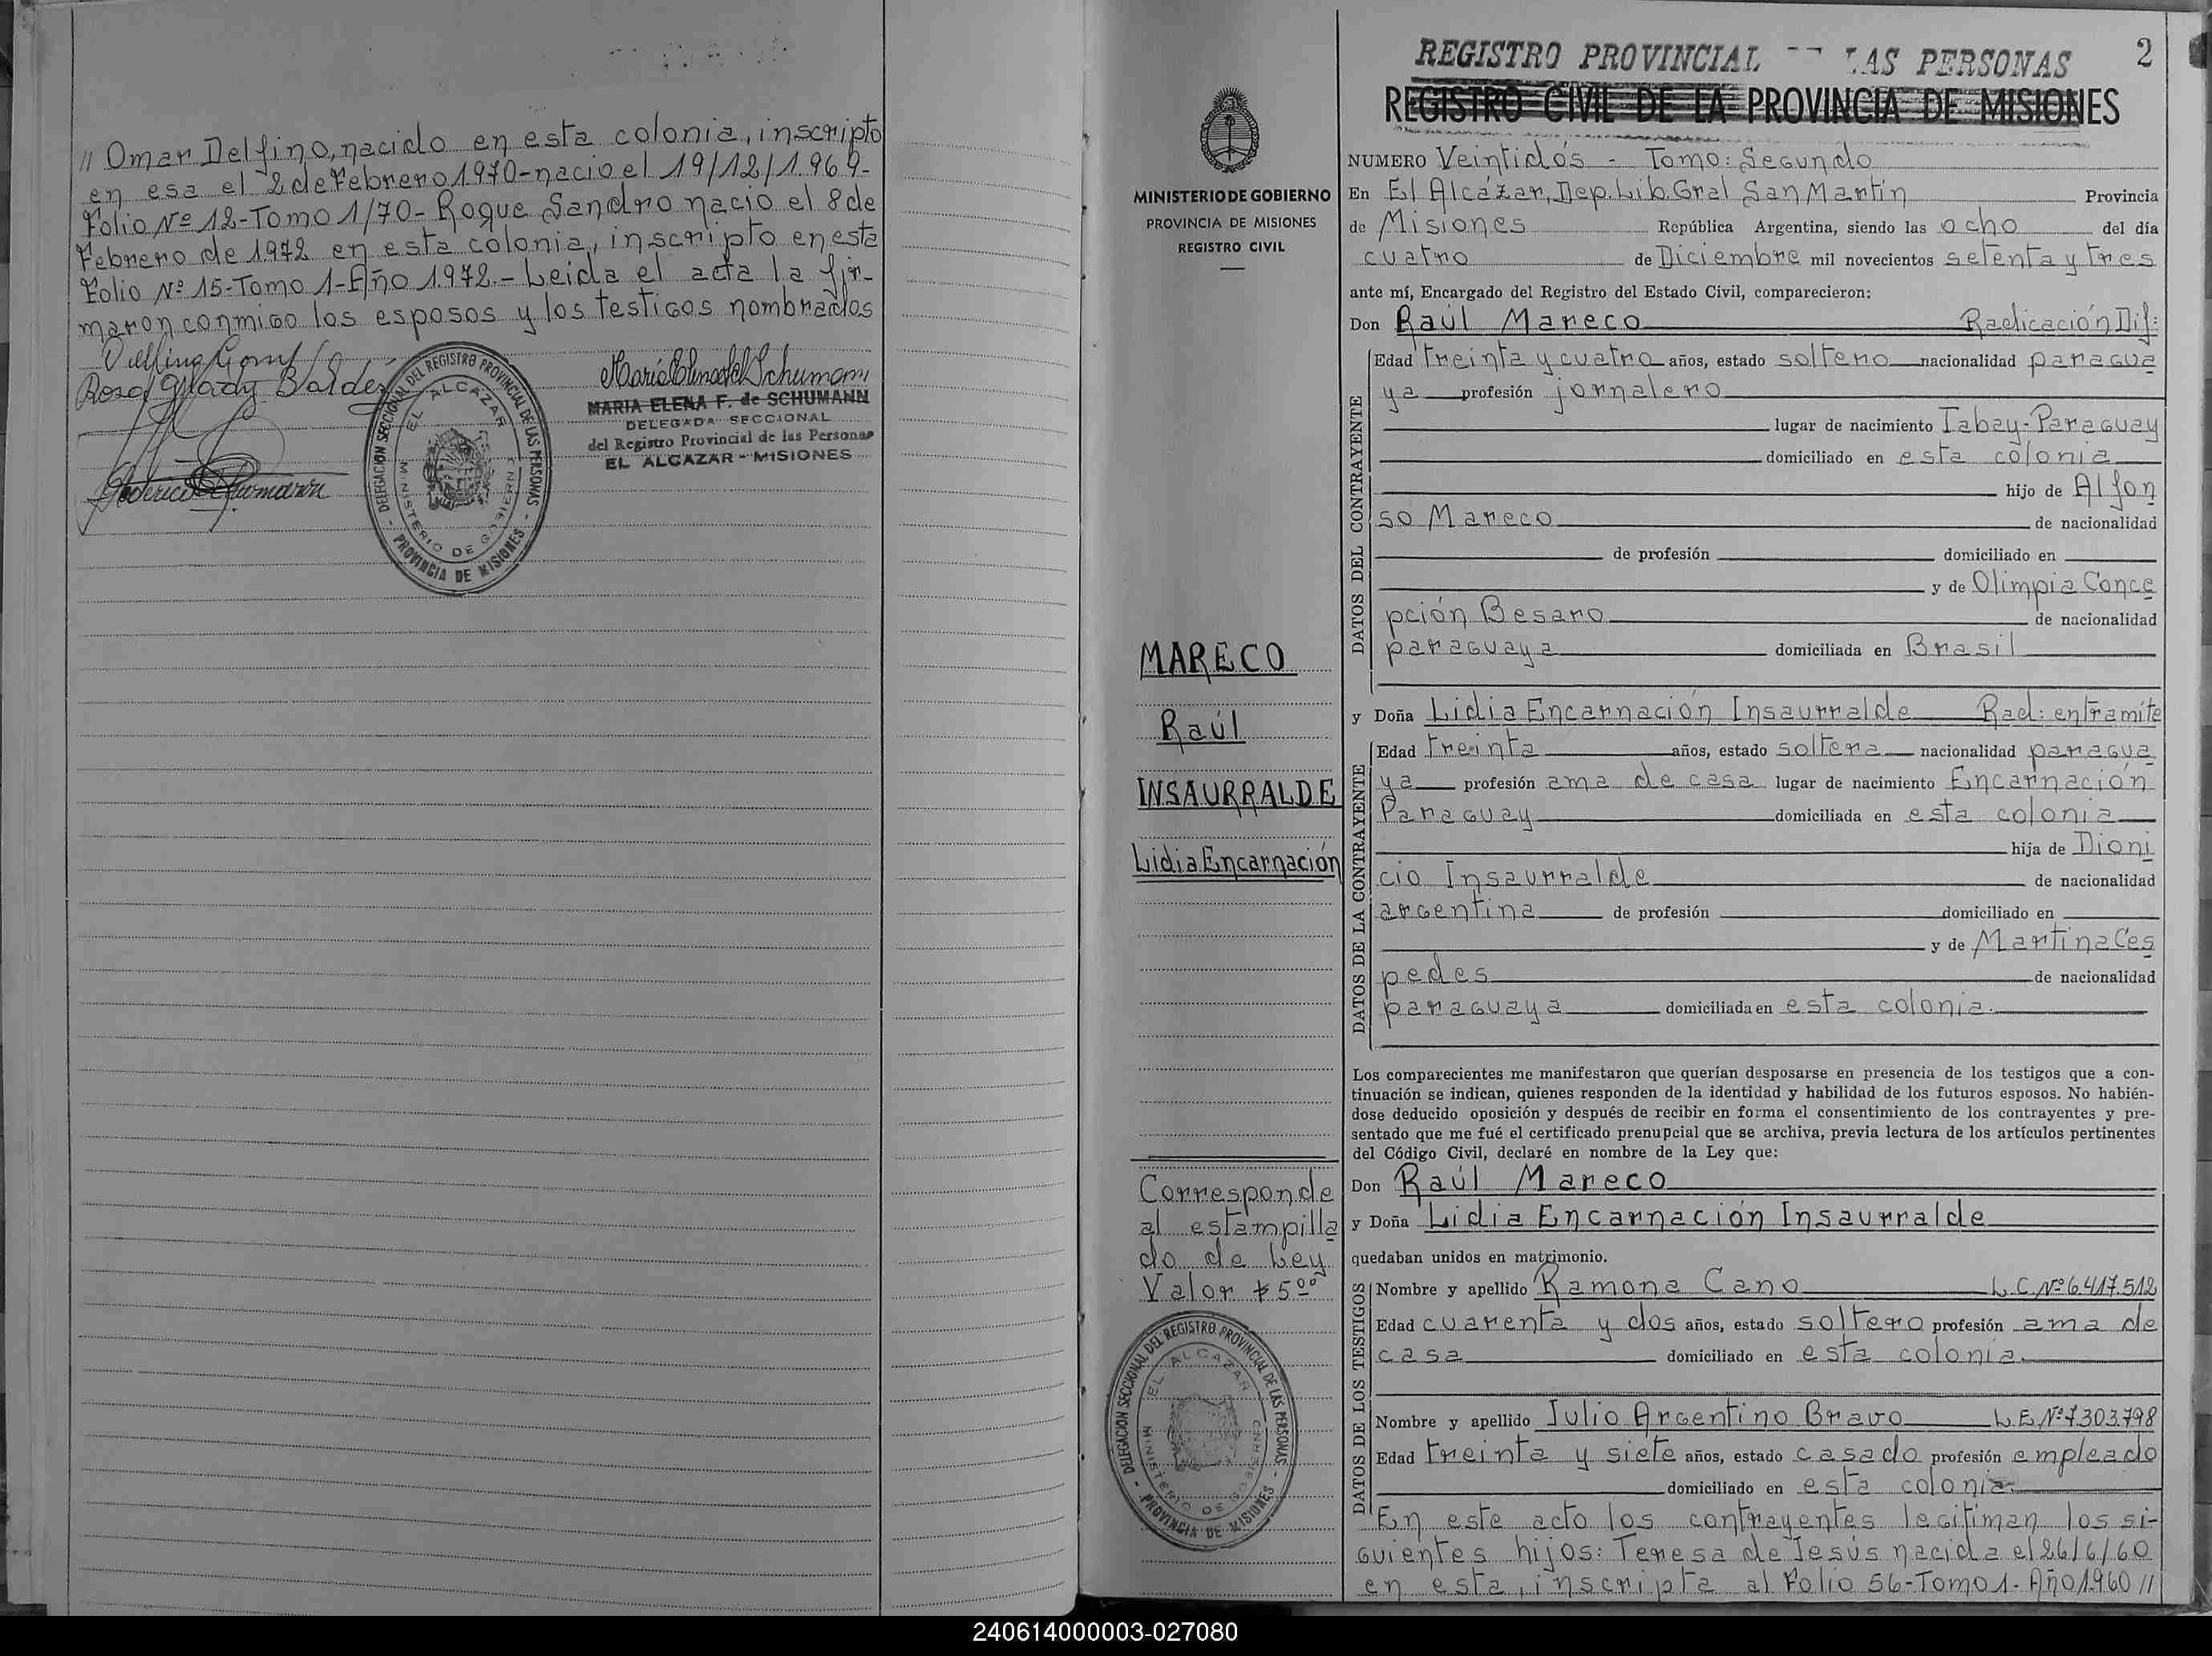 // Omar Delfino, nacido en esta colonia, inscripto
en esa el 2 de Febrero 1970-nacio el 19/12/1.969-
Folio Nº 12-Tomo 1/70- Roque Sandro nacio el 8 de
Febrero de 1972 en esta colonia, inscripto en esta
Folio Nº 15-Tomo 1-Año 1.972.- Leida el acta la fir-
maron conmigo los esposos y los testigos nombrados
Rosa Glady Baldez
Federico Schumann
DELEGACION SECCIONAL DEL REGISTRO PROVINCIAL DE LAS PERSONAS -
PROVINCIA DE MISIONES -
EL ALCAZAR
MINISTERIO DE GOBIERNO
María Elena F de Schumann
MARIA ELENA F. de SCHUMANN
DELEGADA SECCIONAL
del Registro Provincial de las Personas
EL ALCAZAR - MISIONES
MINISTERIO DE GOBIERNO
PROVINCIA DE MISIONES
REGISTRO CIVIL
MARECO
Raúl
INSAURRALDE
Lidia Encarnación
Corresponde
al estampilla
do de Ley
Valor $ 5.00
DELEGACION SECCIONAL DEL REGISTRO PROVINCIAL DE LAS PERSONAS -
PROVINCIA DE MISIONES -
EL ALCAZAR
MINISTERIO DE GOBIERNO
2
REGISTRO PROVINCIAL LAS PERSONAS
REGISTRO CIVIL DE LA PROVINCIA DE MISIONES
NUMERO Veintidós - Tomo: Segundo
En El Alcázar, Dep. Lib. Gral San Martín Provincia
de Misiones República Argentina, siendo las ocho del día
cuatro de Diciembre mil novecientos setenta y tres
ante mí, Encargado del Registro del Estado Civil, comparecieron:
Don Raúl Mareco Radicación Dif:
DATOS DEL CONTRAYENTE
Edad treinta y cuatro años, estado soltero nacionalidad paragua
ya profesión jornalero
lugar de nacimiento Tabay-Paraguay
domiciliado en esta colonia
hijo de Alfon
so Mareco de nacionalidad
de profesión domiciliado en
y de Olimpia Conce
pción Besaro de nacionalidad
paraguaya domiciliada en Brasil
y Doña Lidia Encarnación Insaurralde Rad: en tramite
DATOS DE LA CONTRAYENTE
Edad treinta años, estado soltera nacionalidad paragua
ya profesión ama de casa lugar de nacimiento Encarnación
Paraguay domiciliada en esta colonia
hija de Dioni
cio Insaurralde de nacionalidad
argentina de profesión domiciliado en
y de Martina Ces
pedes de nacionalidad
paraguaya domiciliada en esta colonia.
Los comparecientes me manifestaron que querían desposarse en presencia de los testigos que a con-
tinuación se indican, quienes responden de la identidad y habilidad de los futuros esposos. No habién-
dose deducido oposición y después de recibir en forma el consentimiento de los contrayentes y pre-
sentado que me fué el certificado prenupcial que se archiva, previa lectura de los artículos pertinentes
del Código Civil, declaré en nombre de la Ley que:
Don Raúl Mareco
y Doña Lidia Encarnación Insaurralde
quedaban unidos en matrimonio.
DATOS DE LOS TESTIGOS
Nombre y apellido Ramona Cano L.C.Nº6.417.512
Edad cuarenta y dos años, estado soltero profesión ama de
casa domiciliado en esta colonia.
Nombre y apellido Julio Argentino Bravo L.E.Nº7.303.798
Edad treinta y siete años, estado casado profesión empleado
domiciliado en esta colonia.
En este acto los contrayentes legitiman los si-
guientes hijos: Teresa de Jesús nacida el 26/6/60
en esta, inscripta al Folio 56-Tomo 1- Año 1.960 //
240614000003-027080